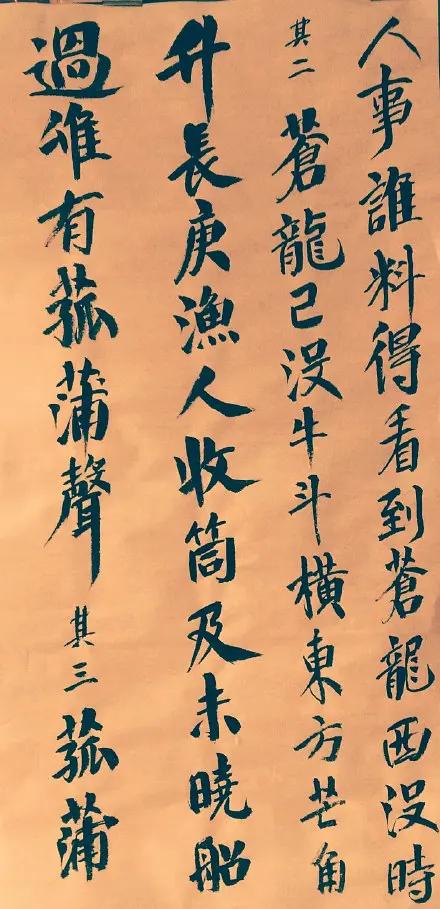 人事誰料得看到蒼龍西没時
其二 蒼龍已没牛斗橫東方芒角
升長庚漁人收筒及未曉船
過惟有菰蒲聲 其三 菰蒲